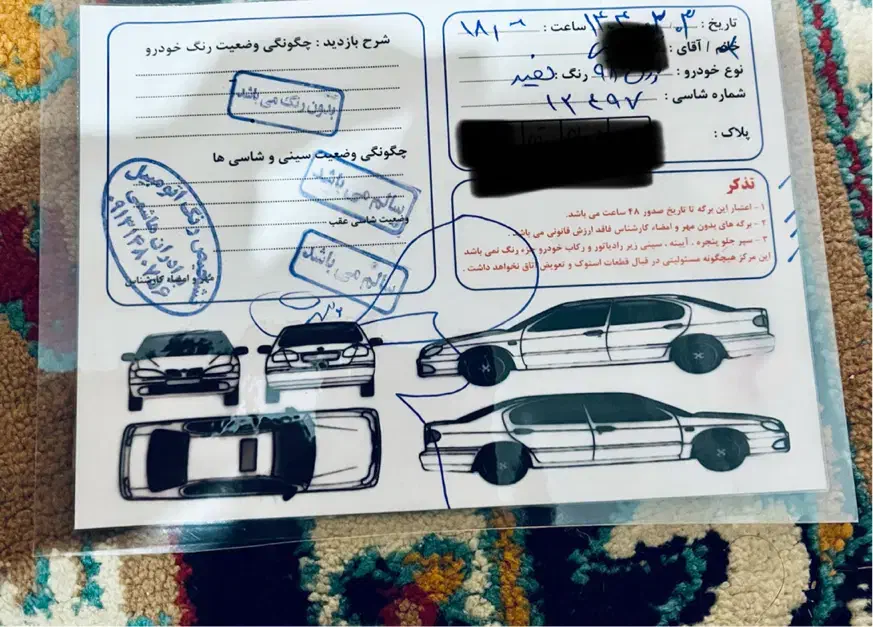 تاریخ : ۱۴۰۳،۳،۳ ساعت : ۱۸،۰
خانم / آقای :
نوع خودرو : ۹۱ رنگ : سفید
شماره شاسی : ۱۲۴۹۷
پلاک :
تذکر
۱ - اعتبار این برگه تا تاریخ صدور ۴۸ ساعت می باشد.
۲ - برگه های بدون مهر و امضاء کارشناس فاقد ارزش قانونی می باشد.
۳ - سپر جلو پنجره ، آیینه ، سینی زیر رادیاتور و رکاب خودرو جزء رنگ نمی باشد
این مرکز هیچگونه مسئولیتی در قبال قطعات استوک و تعویض اتاق نخواهد داشت .
شرح بازدید : چگونگی وضعیت رنگ خودرو
بدون رنگ می باشد
چگونگی وضعیت سینی و شاسی ها
سالم می باشد
وضعیت شاسی عقب
سالم می باشد
تشخیص رنگ اتومبیل
برادران هاشمی
مهر و امضاء کارشناس